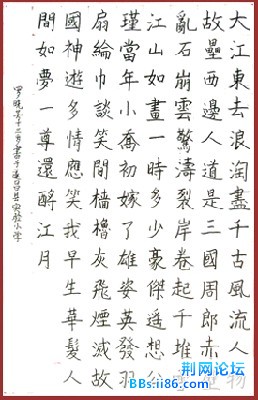 大江東去浪淘盡千古風流人物
故壘西邊人道是三國周郎赤壁
亂石崩雲驚濤裂岸卷起千堆雪
江山如畫一時多少豪傑遙想公
瑾當年小喬初嫁了雄姿英發羽
扇綸巾談笑間檣櫓灰飛煙滅故
國神遊多情應笑我早生華髮人
間如夢一尊還酹江月
十二岁書于昌县实验小学
荆网论坛
BBs.ii86.com